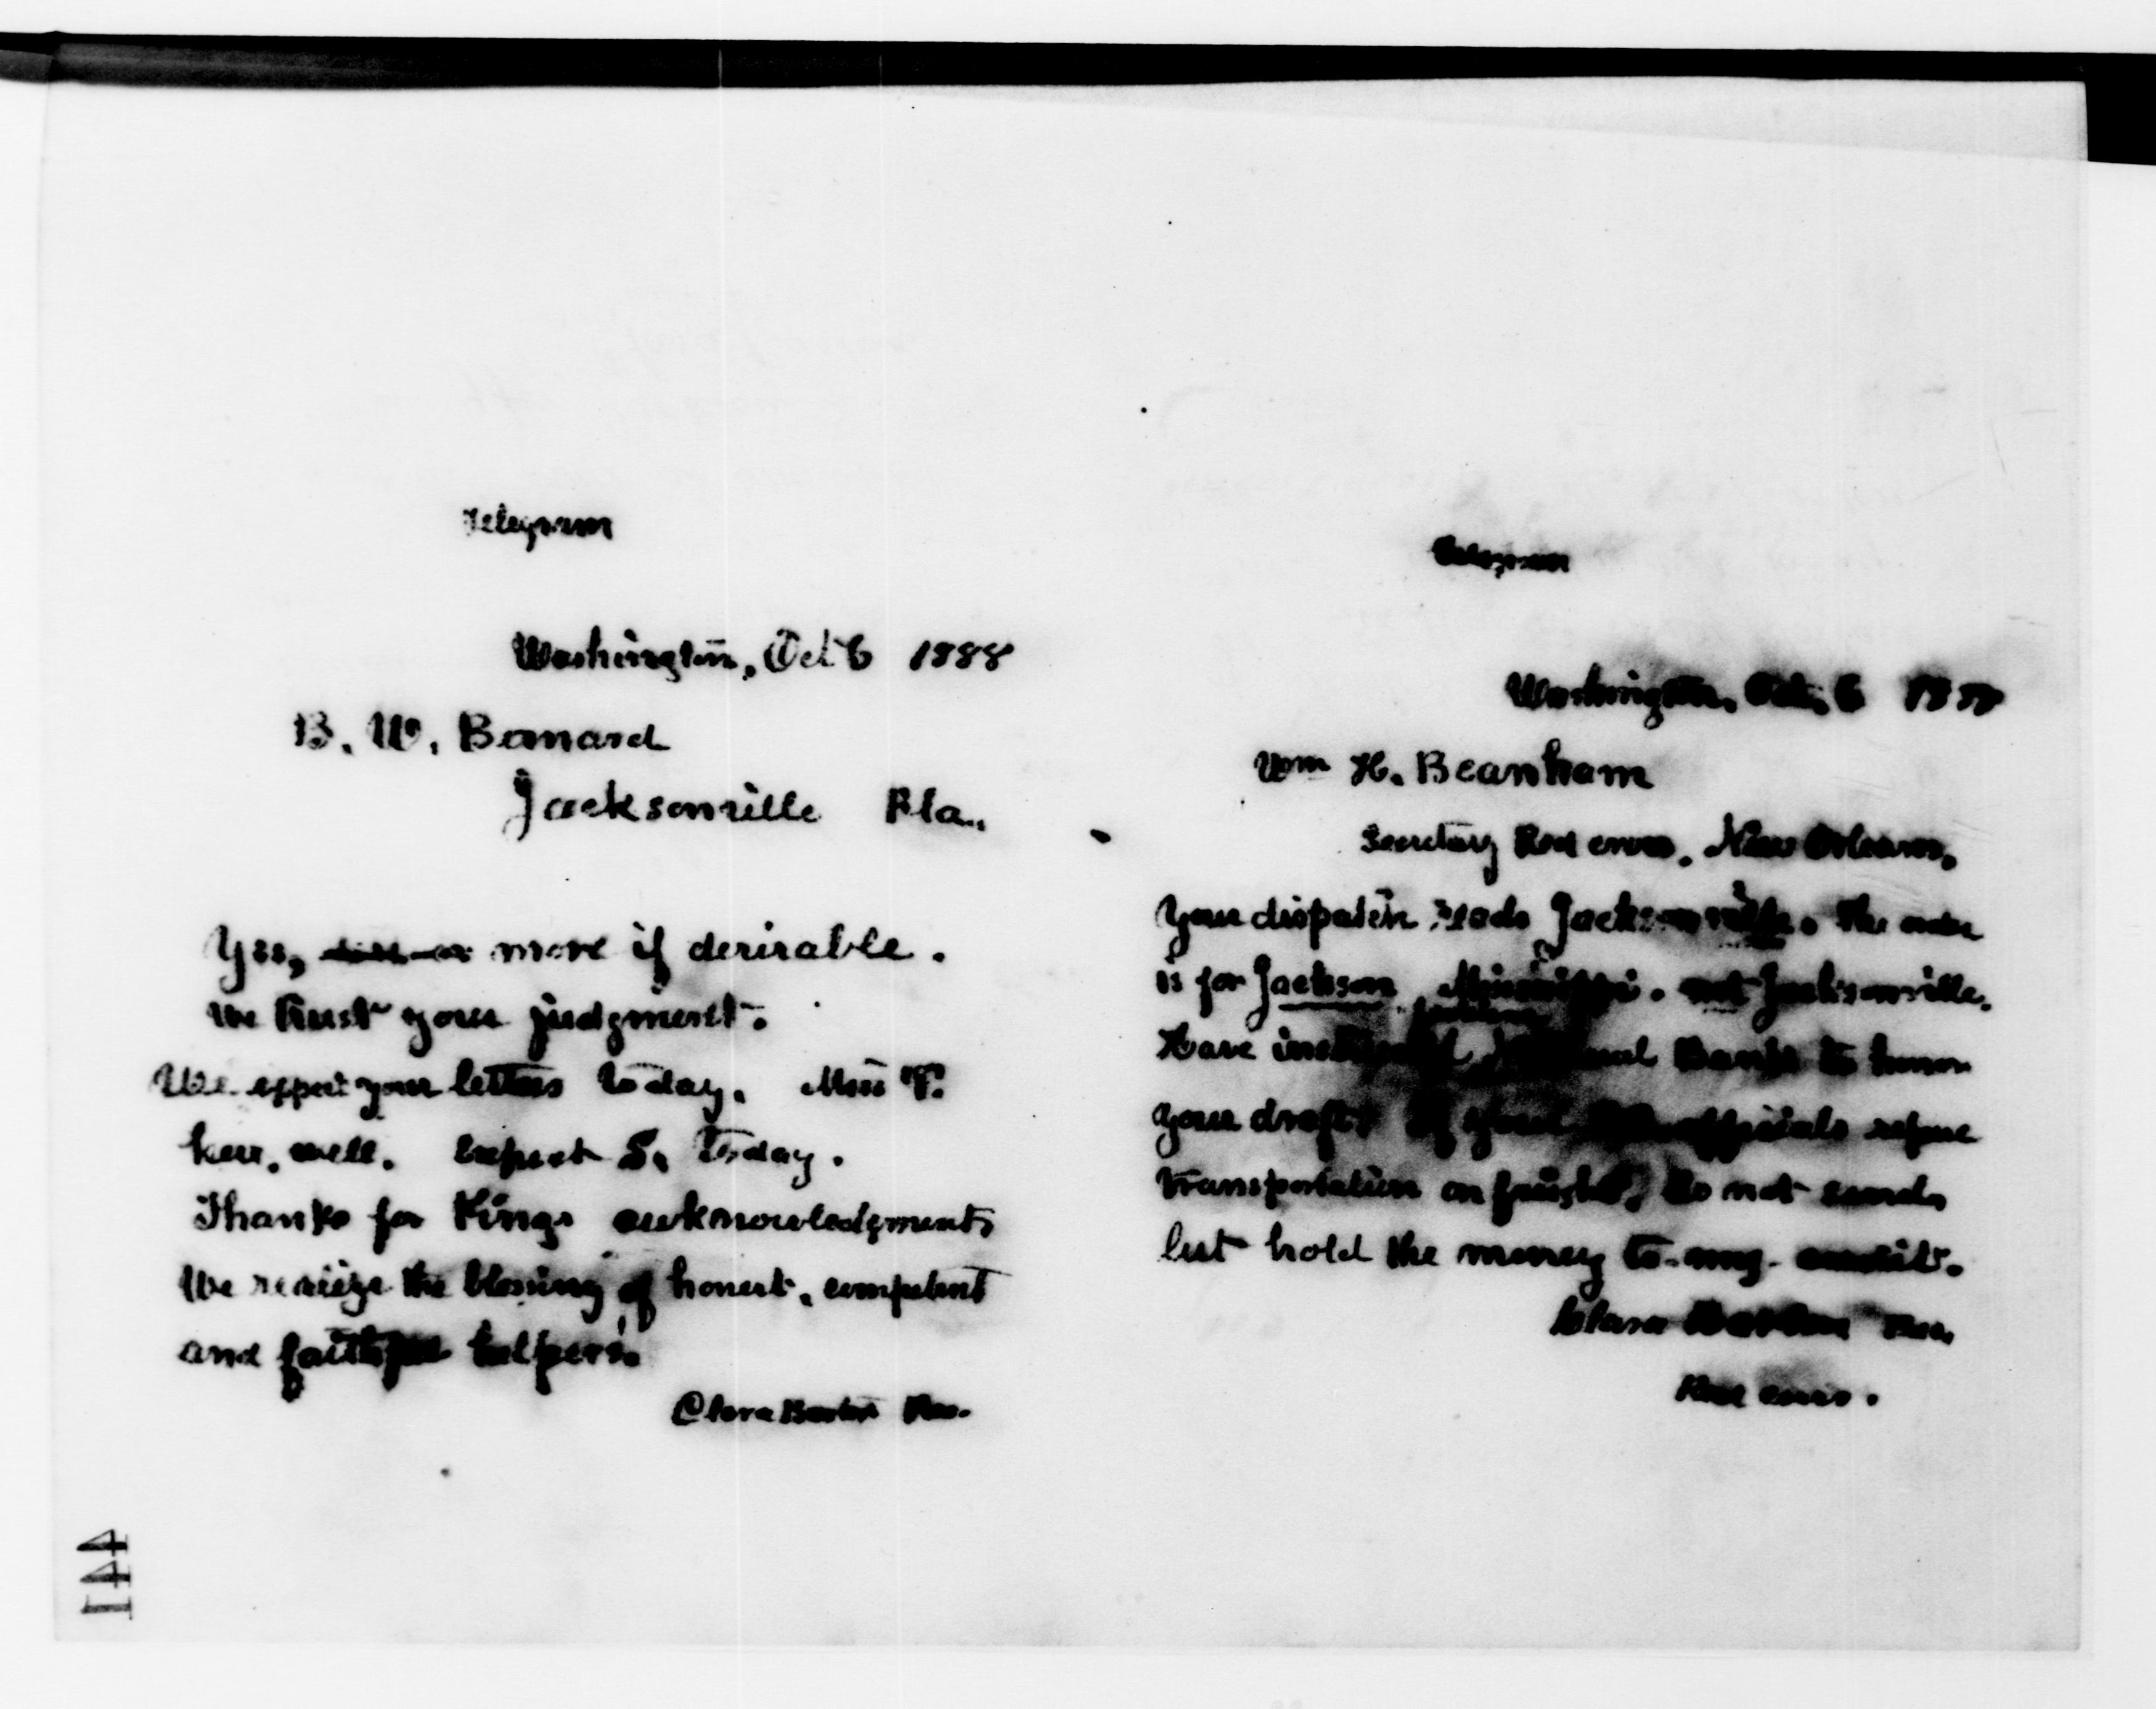 Telegram
Washington, Oct 6 1888
B. W. Bernard
Jacksonville Fla..
Yes, more if desirable.
We trust your judgment.
We expect your letters today. Miss P.
here, well. Expect S. today.
Thanks for Kings acknowledgments
We realize the blessing of honest, competent
and faithful helpers.
Clara Barton Pres.
Telegram
Washington, Oct. 6 1888
Wm H. Beanham
Secretary Red Cross, New Orleans,
Your dispatch reads Jacksonville. The order
is for Jackson Mississippi. not Jacksonville.
Have Bank to honor
your draft. If your officials refuse
transportation on freight, do not send,
but hold the money to my credit.
Clara Barton Pres.
Red Cross.
144